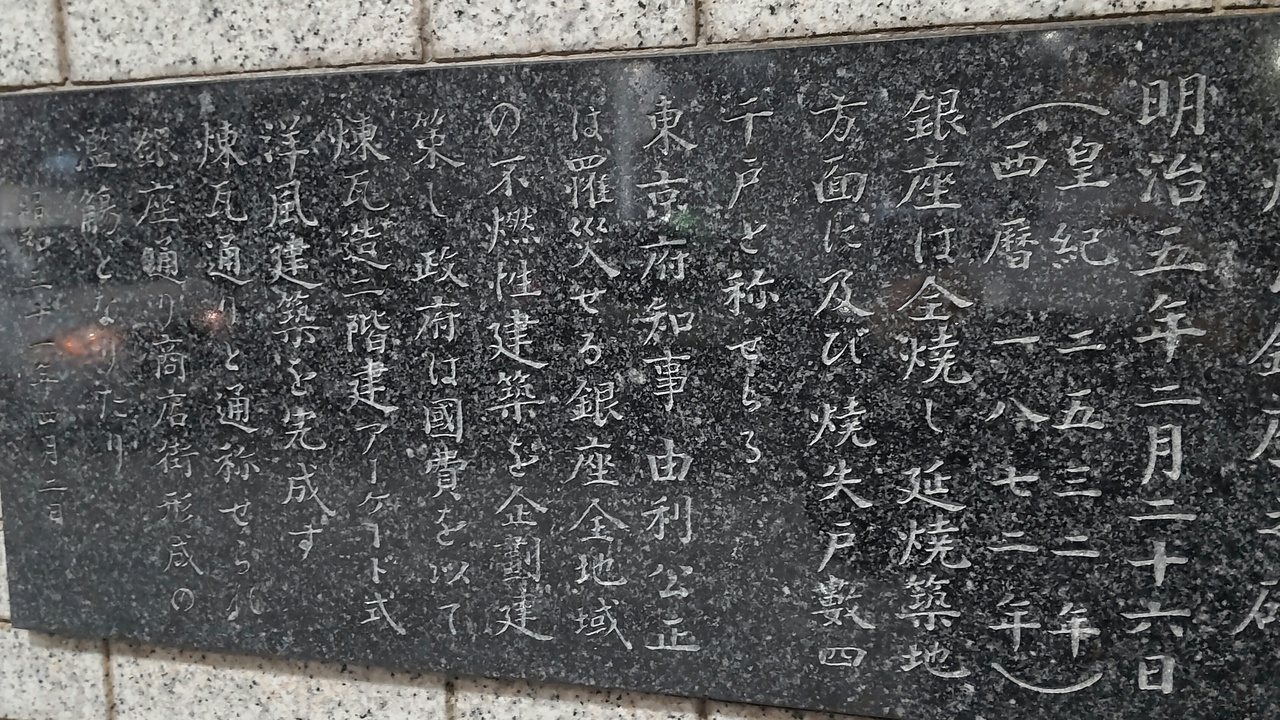 明治五年二月二十六日
(皇紀 二五三二年
西暦 一八七二年)
銀座は全燒し 延燒築地
方面に及び 燒失戸數四
千戸と称せらる
東京府知事 由利公正
は罹災せる銀座全地域
の不燃性建築を企劃建
策し 政府は國費を以て
煉瓦造二階建アーケード式
洋風建築を完成す
煉瓦通りと通称せられ
銀座通り商店街形成の
濫觴となりたり
昭和三十一年四月二日